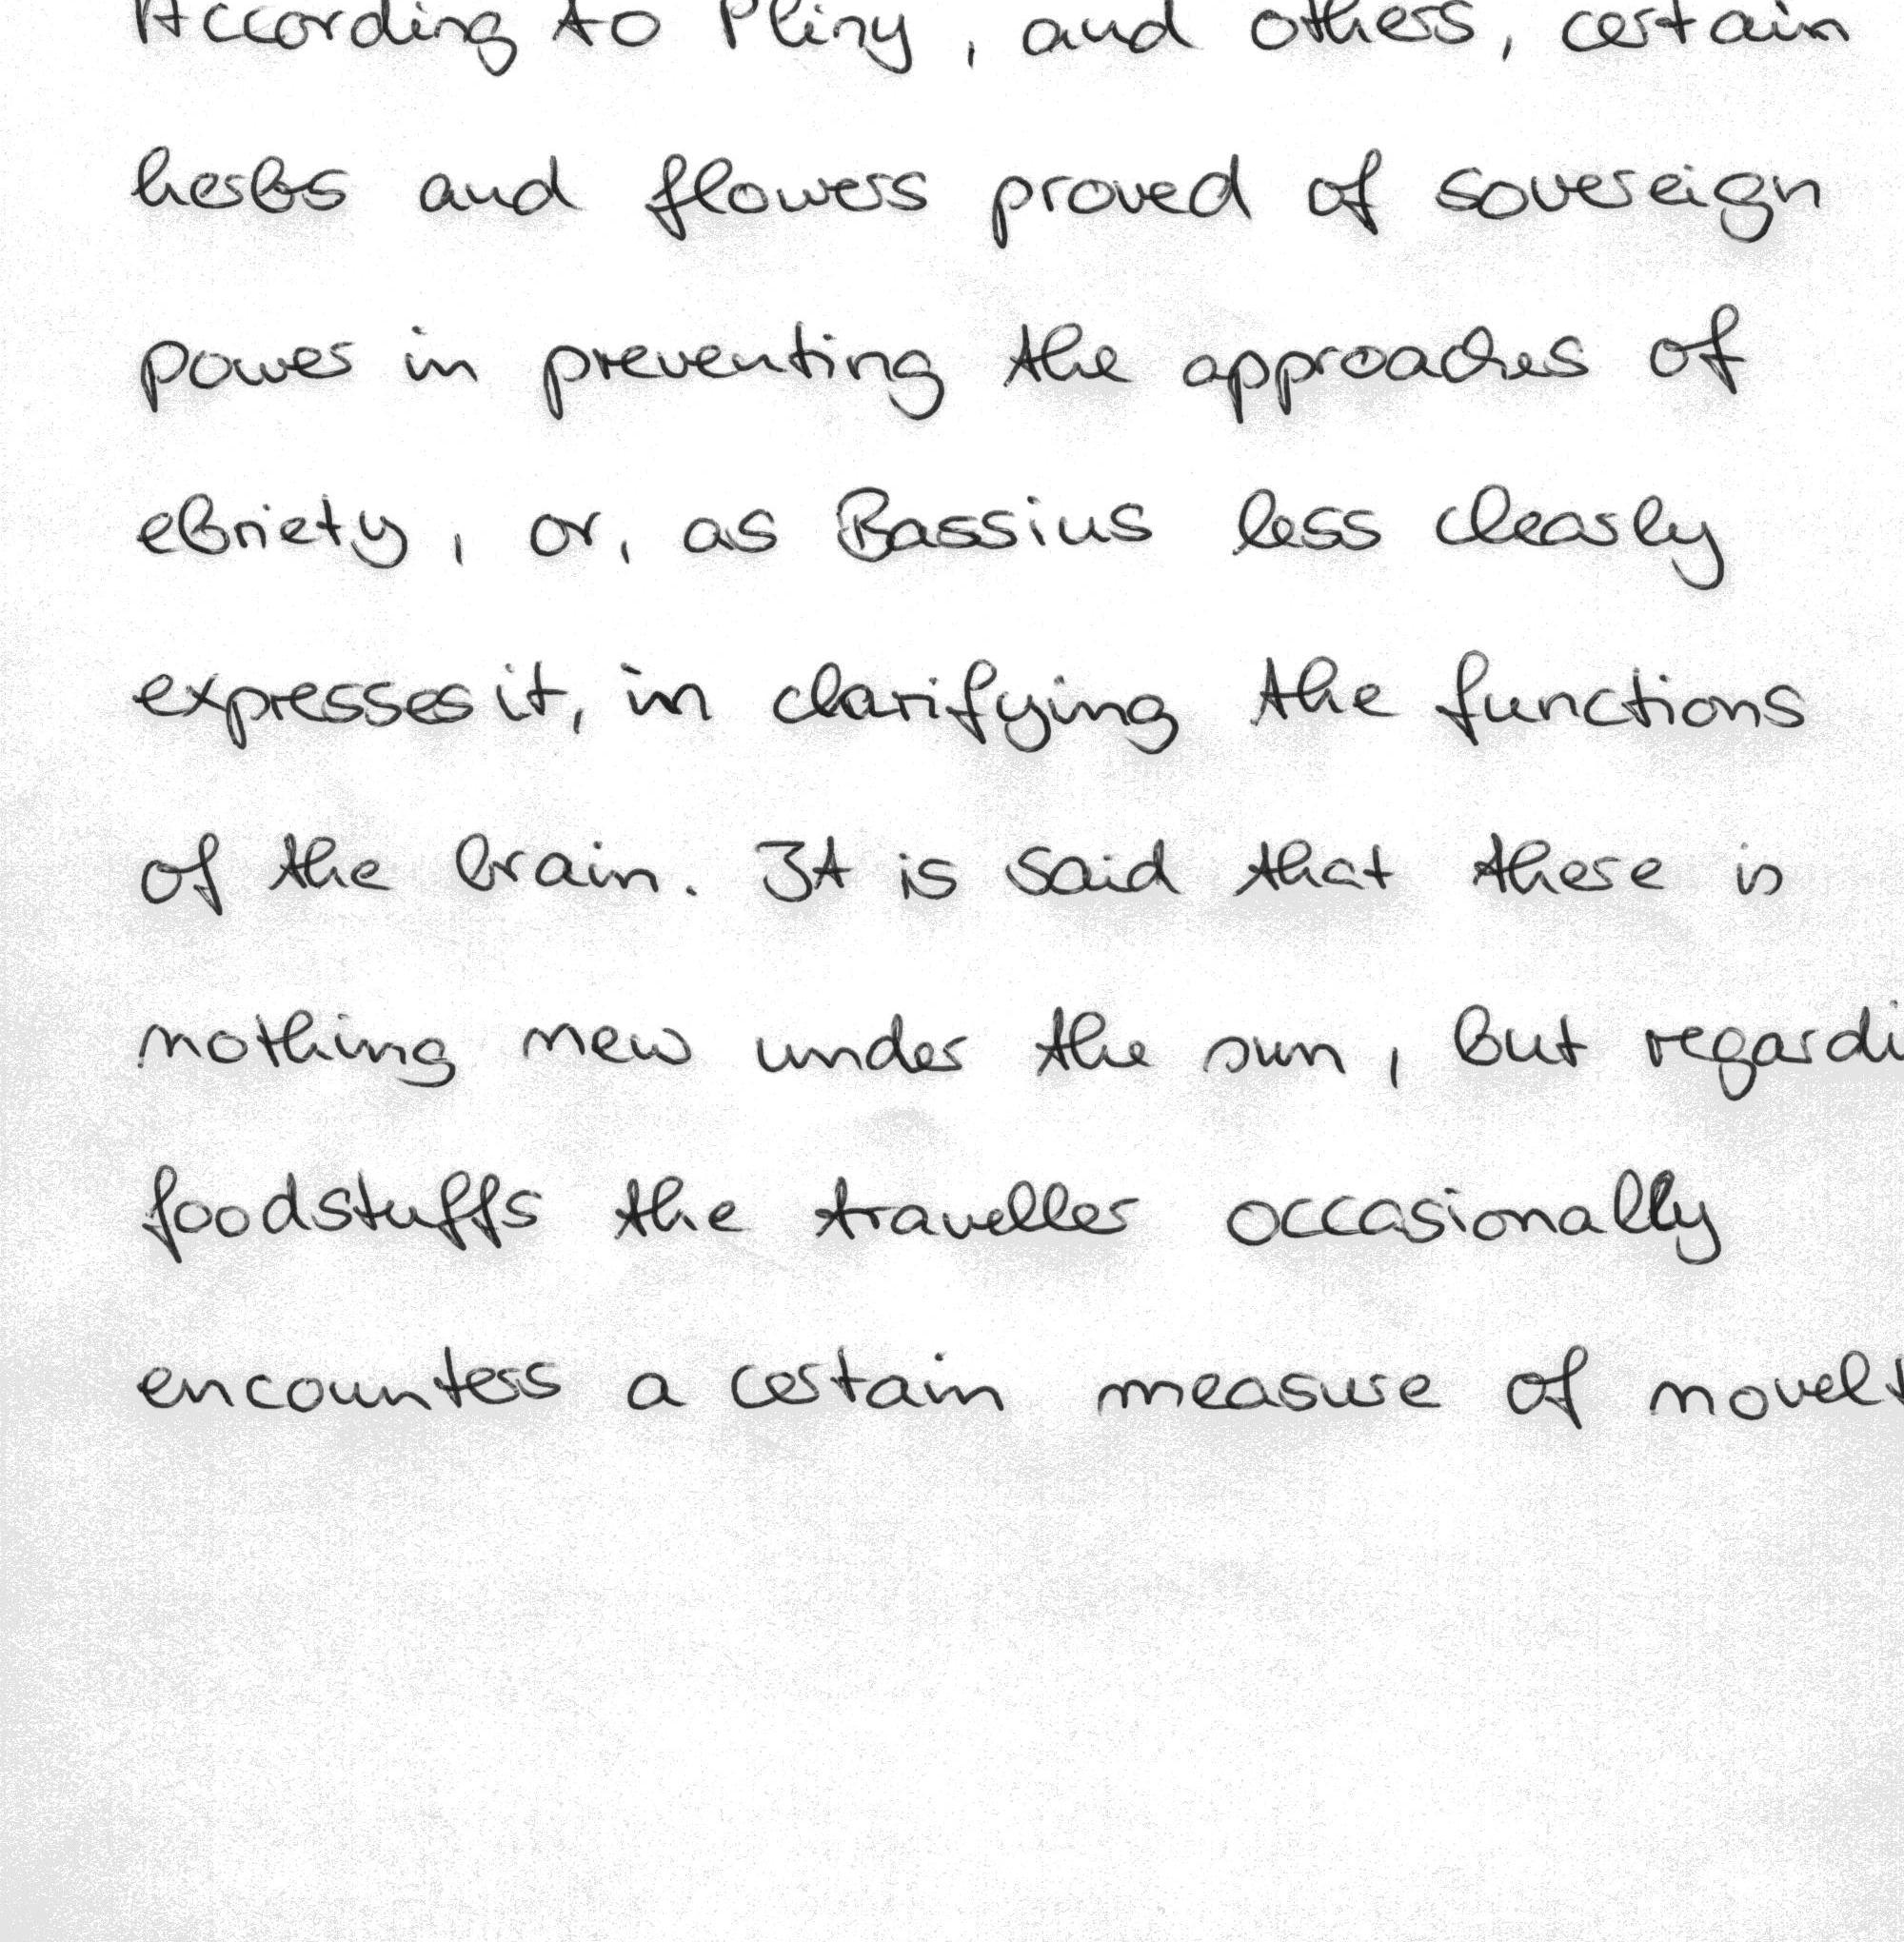 According to Pliny, and others, certain
herbs and flowers proved of sovereign
power in preventing the approaches of
ebriety, or, as Bassius less clearly
expresses it, in clarifying the functions
of the brain. It is said that there is
nothing new under the sun, but regardi
foodstuffs the traveller occasionally
encounters a certain measure of novelt